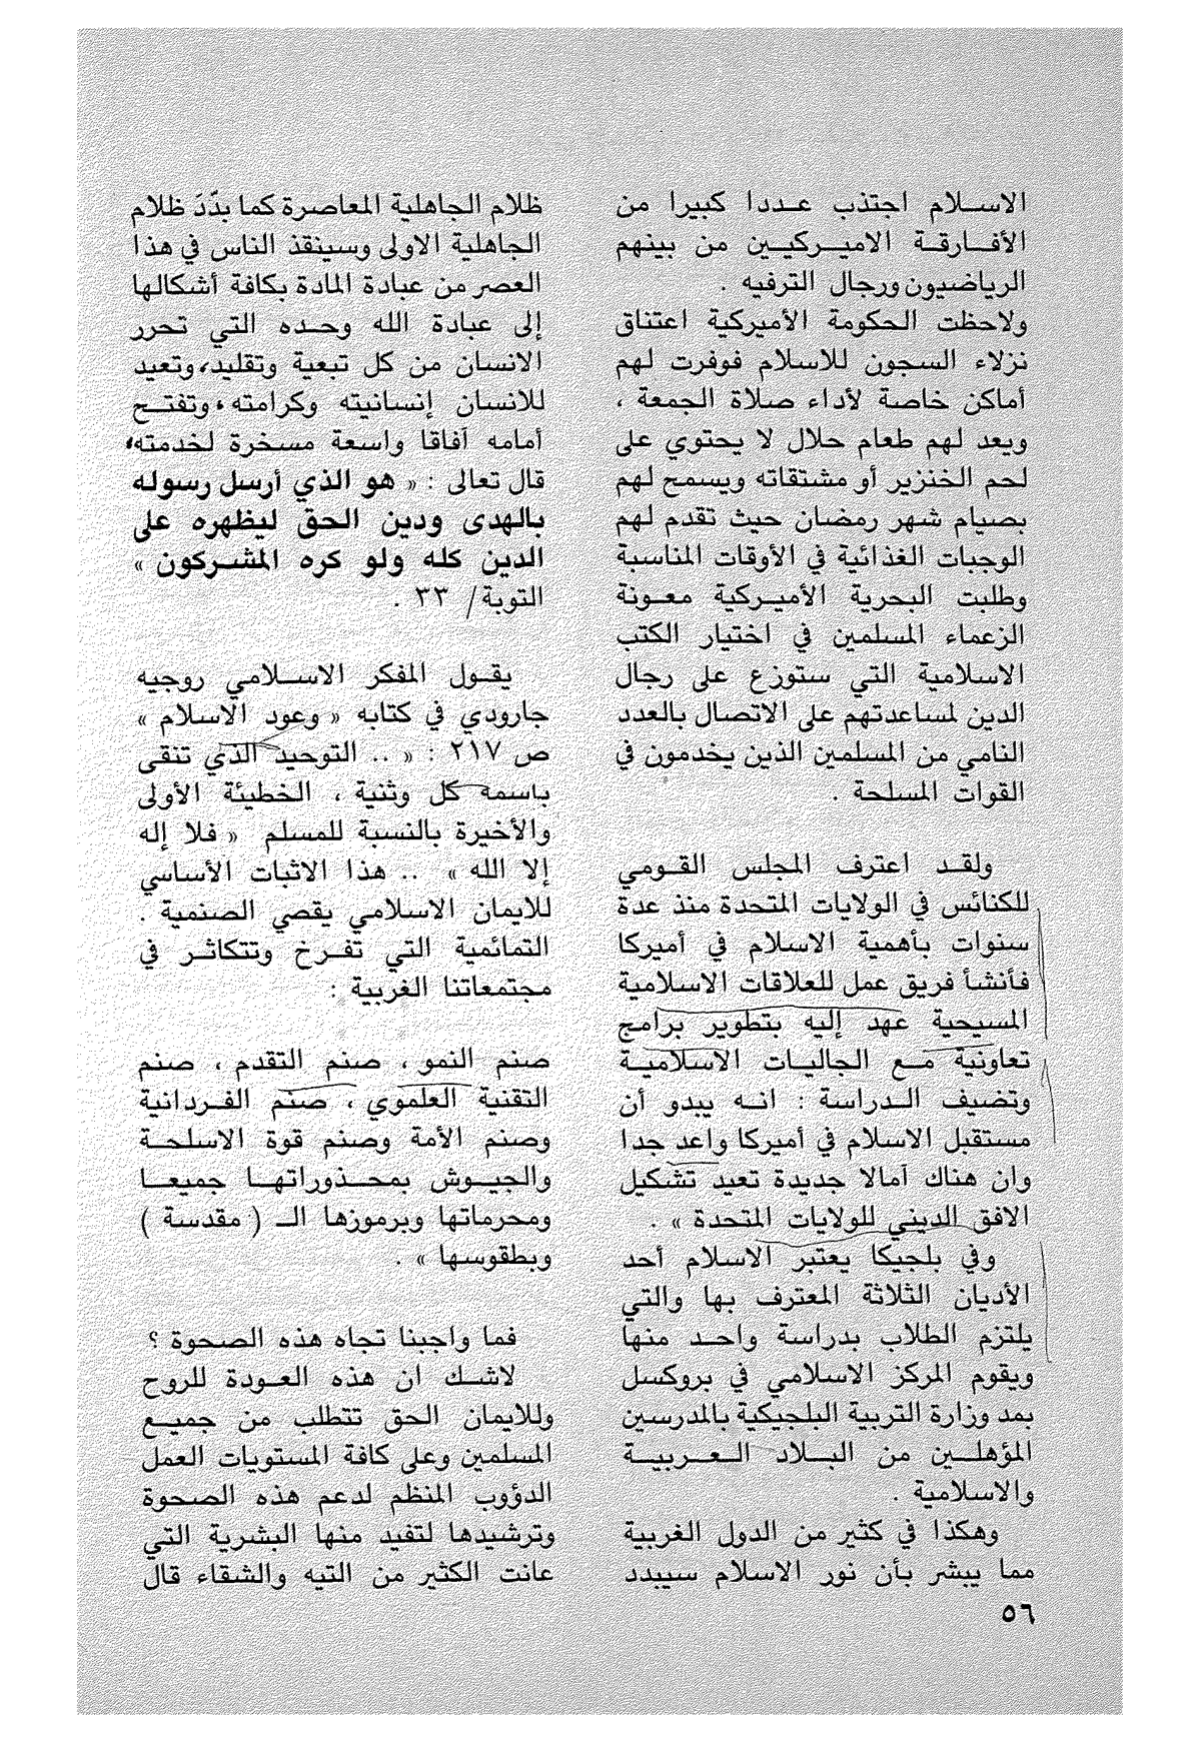 الاسلام اجتذب عددا كبيرا من
الأفارقة الاميركيين من بينهم
الرياضيون ورجال الترفيه .
ولاحظت الحكومة الأميركية اعتناق
نزلاء السجون للاسلام فوفرت لهم
أماكن خاصة لأداء صلاة الجمعة ،
ويعد لهم طعام حلال لا يحتوي على
لحم الخنزير أو مشتقاته ويسمح لهم
بصيام شهر رمضان حيث تقدم لهم
الوجبات الغذائية في الأوقات المناسبة
وطلبت البحرية الأميركية معونة
الزعماء المسلمين في اختيار الكتب
الاسلامية التي ستوزع على رجال
الدين لمساعدتهم على الاتصال بالعدد
النامي من المسلمين الذين يخدمون في
القوات المسلحة .
ولقد اعترف المجلس القومي
للكنائس في الولايات المتحدة منذ عدة
سنوات بأهمية الاسلام في أميركا
فأنشأ فريق عمل للعلاقات الاسلامية
المسيحية عهد إليه بتطوير برامج
تعاونية مع الجاليات الاسلامية
وتضيف الدراسة : انه يبدو أن
مستقبل الاسلام في أميركا واعد جدا
وان هناك آمالا جديدة تعيد تشكيل
الافق الديني للولايات المتحدة » .
وفي بلجيكا يعتبر الاسلام أحد
الأديان الثلاثة المعترف بها والتي
يلتزم الطلاب بدراسة واحد منها
ويقوم المركز الاسلامي في بروكسل
بمد وزارة التربية البلجيكية بالمدرسين
المؤهلين من البلاد العربية
والاسلامية .
وهكذا في كثير من الدول الغربية
مما يبشر بأن نور الاسلام سيبدد
ظلام الجاهلية المعاصرة كما بدّدَ ظلام
الجاهلية الاولى وسينقذ الناس في هذا
العصر من عبادة المادة بكافة أشكالها
إلى عبادة الله وحده التي تحرر
الانسان من كل تبعية وتقليد، وتعيد
للانسان إنسانيته وكرامته ، وتفتح
أمامه آفاقا واسعة مسخرة لخدمته،
قال تعالى : « هو الذي أرسل رسوله
بالهدى ودين الحق ليظهره على
الدين كله ولو كره المشركون »
التوبة/ ٣٣ .
يقول المفكر الاسلامي روجيه
جارودي في كتابه « وعود الاسلام »
ص ٢١٧ : « .. التوحيد الذي تنقى
باسمه كل وثنية ، الخطيئة الأولى
والأخيرة بالنسبة للمسلم « فلا إله
إلا الله » .. هذا الاثبات الأساسي
للايمان الاسلامي يقصي الصنمية .
التمائمية التي تفرخ وتتكاثر في
مجتمعاتنا الغربية :
صنم النمو ، صنم التقدم ، صنم
التقنية العلموي ، صنم الفردانية
وصنم الأمة وصنم قوة الاسلحة
والجيوش بمحذوراتها جميعا
ومحرماتها وبرموزها الـ ( مقدسة )
وبطقوسها » .
فما واجبنا تجاه هذه الصحوة ؟
لاشك ان هذه العودة للروح
وللايمان الحق تتطلب من جميع
المسلمين وعلى كافة المستويات العمل
الدؤوب المنظم لدعم هذه الصحوة
وترشيدها لتفيد منها البشرية التي
عانت الكثير من التيه والشقاء قال
٥٦